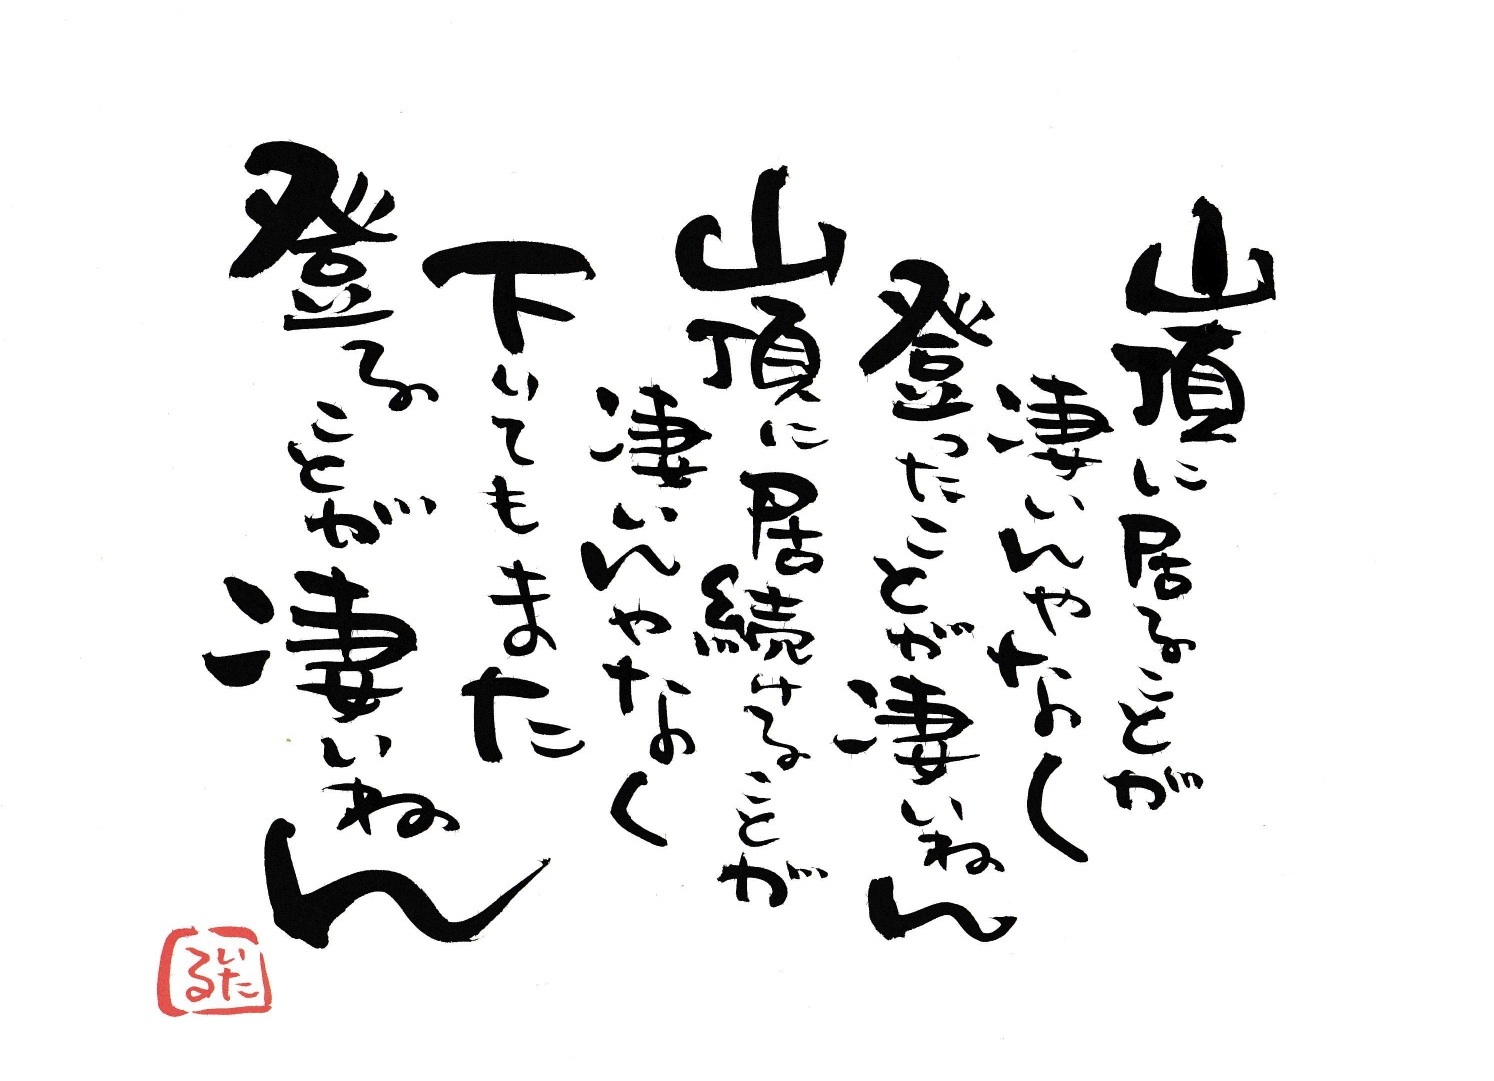 山頂に居ることが
凄いんやなく
登ったことが凄いねん
山頂に居続けることが
凄いんやなく
下いてもまた
登ることが凄いねん
いたる